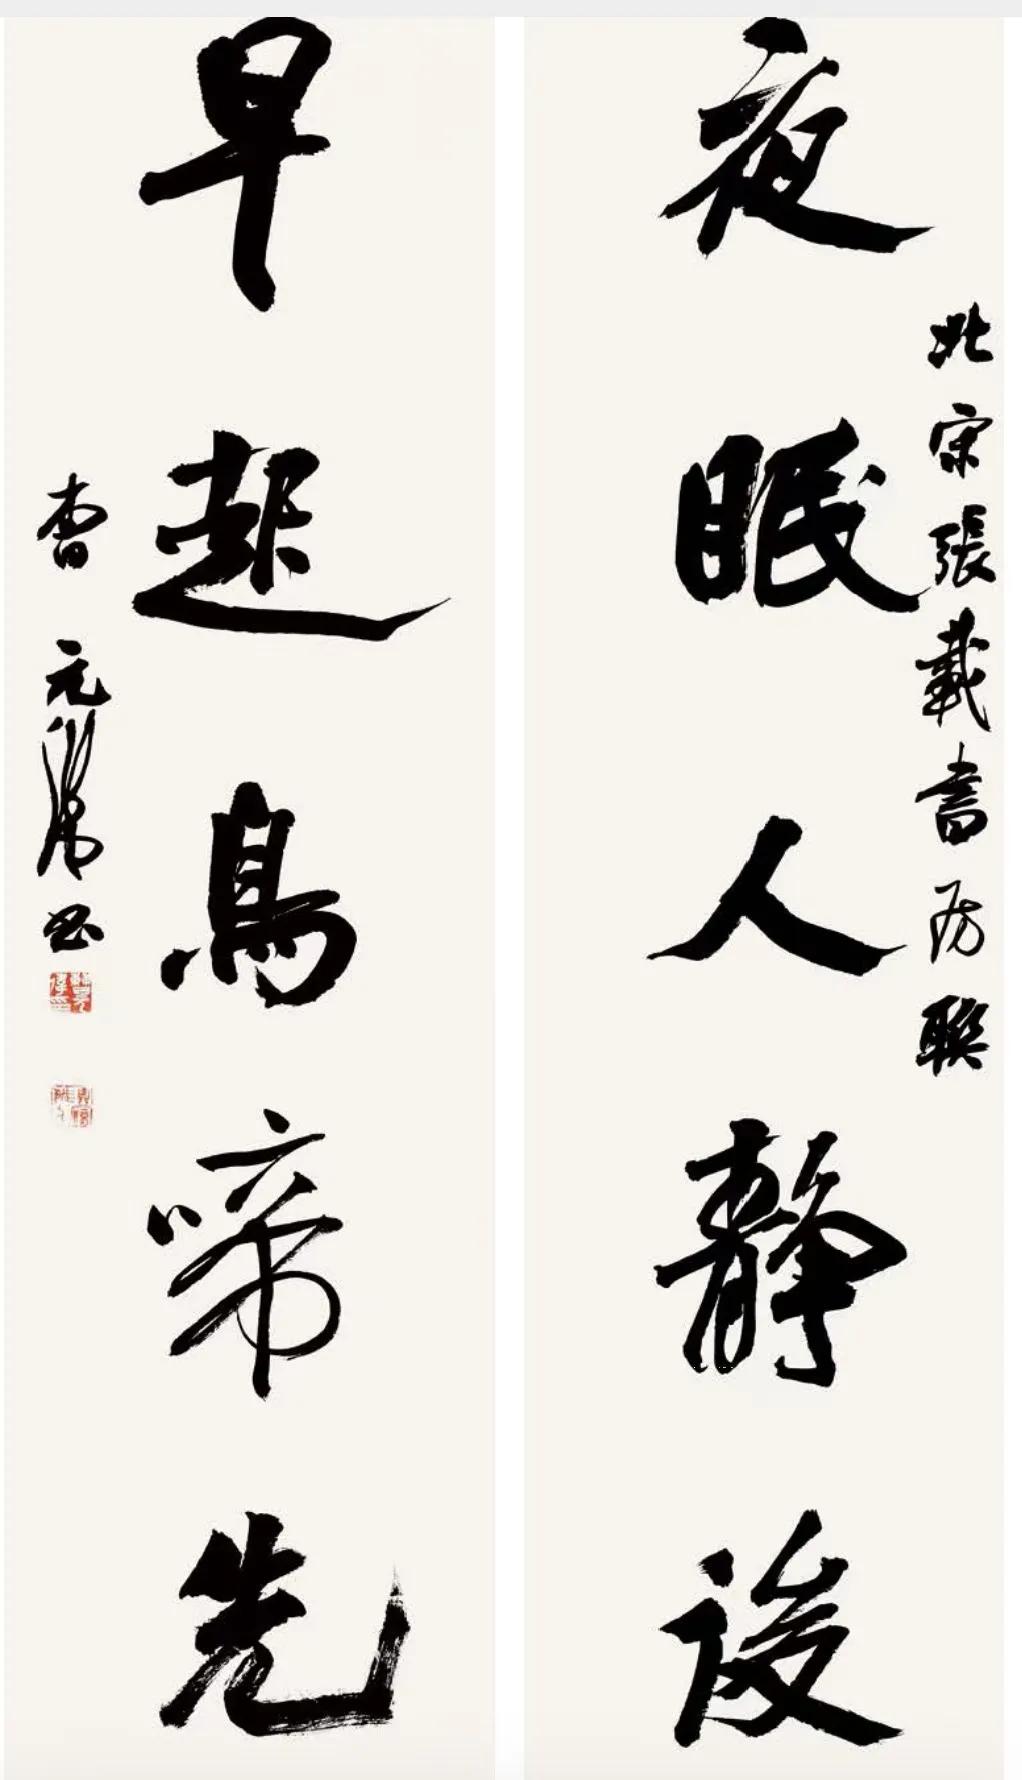 夜眠人靜後
北宋張載書房聯
早起鳥啼先
曹元书